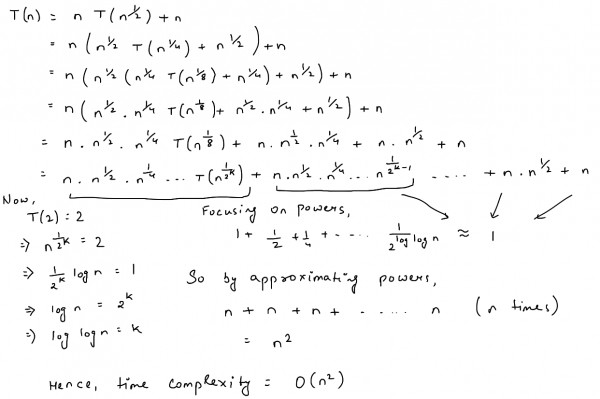 T(n) = n T(n^½) + n
= n (n^½ T(n^¼) + n^½) + n
= n (n^½ (n^¼ T(n^⅛) + n^¼) + n^½) + n
= n (n^½ . n^¼ T(n^⅛) + n^½ . n^¼ + n^½) + n
= n . n^½ . n^¼ T(n^⅛) + n . n^½ . n^¼ + n . n^½ + n
= n . n^½ . n^¼ ... T(n^(1/2^k)) + n . n^½ . n^¼ ... n^(1/2^(k-1)) .... + n . n^½ + n
Now,
T(2) = 2
⇒ n^(1/2^k) = 2
⇒ 1/2^k log n = 1
⇒ log n = 2^k
⇒ log log n = k
Focusing on powers,
1 + 1/2 + 1/4 + ..... 1/2^(log log n) ≈ 1
So by approximating powers,
n + n + n + ..... n (n times)
= n²
Hence, time complexity = O(n²)